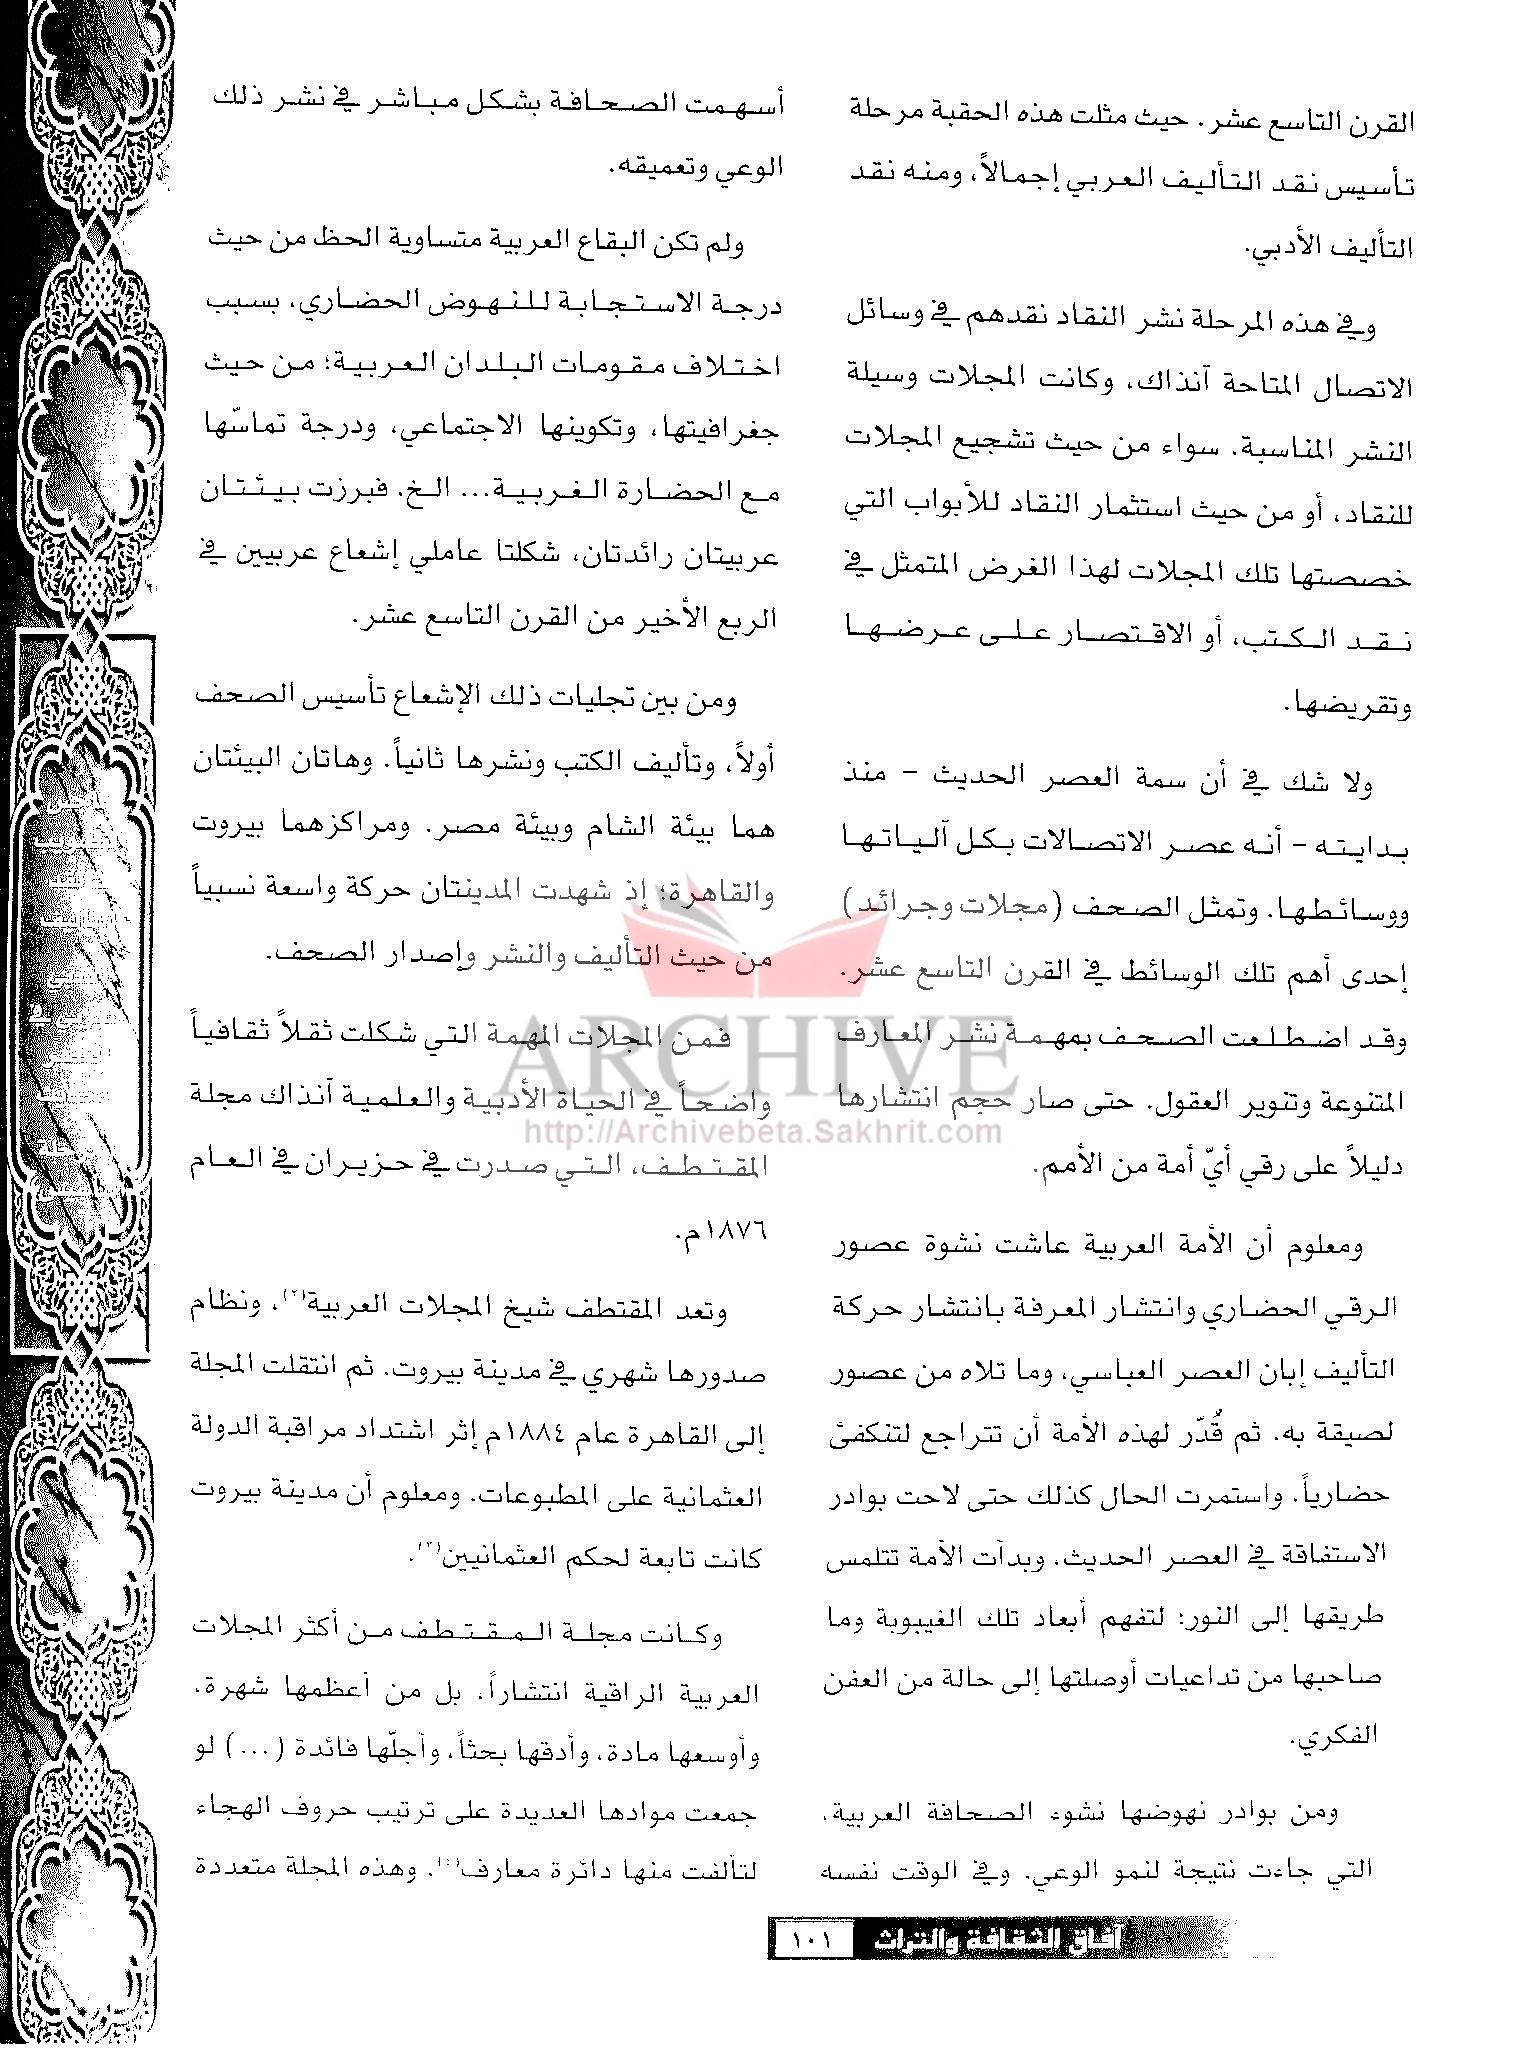 القرن التاسع عشر. حيث مثلت هذه الحقبة مرحلة
تأسيس نقد التأليف العربي إجمالاً، ومنه نقد
التأليف الأدبي.
وفي هذه المرحلة نشر النقاد نقدهم في وسائل
الاتصال المتاحة آنذاك، وكانت المجلات وسيلة
النشر المناسبة. سواء من حيث تشجيع المجلات
للنقاد، أو من حيث استثمار النقاد للأبواب التي
خصصتها تلك المجلات لهذا الغرض المتمثل في
نقد الكتب، أو الاقتصار على عرضها
وتقريضها.
ولا شك في أن سمة العصر الحديث - منذ
بدايته - أنه عصر الاتصالات بكل آلياتها
ووسائطها. وتمثل الصحف (مجلات وجرائد)
إحدى أهم تلك الوسائط في القرن التاسع عشر.
وقد اضطلعت الصحف بمهمة نشر المعارف
المتنوعة وتنوير العقول. حتى صار حجم انتشارها
دليلاً على رقي أيّ أمة من الأمم.
ومعلوم أن الأمة العربية عاشت نشوة عصور
الرقي الحضاري وانتشار المعرفة بانتشار حركة
التأليف إبان العصر العباسي، وما تلاه من عصور
لصيقة به. ثم قُدّر لهذه الأمة أن تتراجع لتنكفئ
حضارياً. واستمرت الحال كذلك حتى لاحت بوادر
الاستفاقة في العصر الحديث. وبدأت الأمة تتلمس
طريقها إلى النور؛ لتفهم أبعاد تلك الغيبوبة وما
صاحبها من تداعيات أوصلتها إلى حالة من العفن
الفكري.
ومن بوادر نهوضها نشوء الصحافة العربية،
التي جاءت نتيجة لنمو الوعي. وفي الوقت نفسه
أسهمت الصحافة بشكل مباشر في نشر ذلك
الوعي وتعميقه.
ولم تكن البقاع العربية متساوية الحظ من حيث
درجة الاستجابة للنهوض الحضاري، بسبب
اختلاف مقومات البلدان العربية؛ من حيث
جغرافيتها، وتكوينها الاجتماعي، ودرجة تماسّها
مع الحضارة الغربية... الخ. فبرزت بيئتان
عربيتان رائدتان، شكلتا عاملي إشعاع عربيين في
الربع الأخير من القرن التاسع عشر.
ومن بين تجليات ذلك الإشعاع تأسيس الصحف
أولاً، وتأليف الكتب ونشرها ثانياً. وهاتان البيئتان
هما بيئة الشام وبيئة مصر. ومراكزهما بيروت
والقاهرة؛ إذ شهدت المدينتان حركة واسعة نسبياً
من حيث التأليف والنشر وإصدار الصحف.
فمن المجلات المهمة التي شكلت ثقلاً ثقافياً
واضحاً في الحياة الأدبية والعلمية آنذاك مجلة
المقتطف، التي صدرت في حزيران في العام
١٨٧٦م.
وتعد المقتطف شيخ المجلات العربية(٢)، ونظام
صدورها شهري في مدينة بيروت. ثم انتقلت المجلة
إلى القاهرة عام ١٨٨٤م إثر اشتداد مراقبة الدولة
العثمانية على المطبوعات. ومعلوم أن مدينة بيروت
كانت تابعة لحكم العثمانيين(٣).
وكانت مجلة المقتطف من أكثر المجلات
العربية الراقية انتشاراً، بل من أعظمها شهرة،
وأوسعها مادة، وأدقها بحثاً، وأجلّها فائدة (...) لو
جمعت موادها العديدة على ترتيب حروف الهجاء
لتألفت منها دائرة معارف(٤). وهذه المجلة متعددة
ARCHIVE
http://Archivebeta.Sakhrit.com
آفاق الثقافة والتراث ١٠١